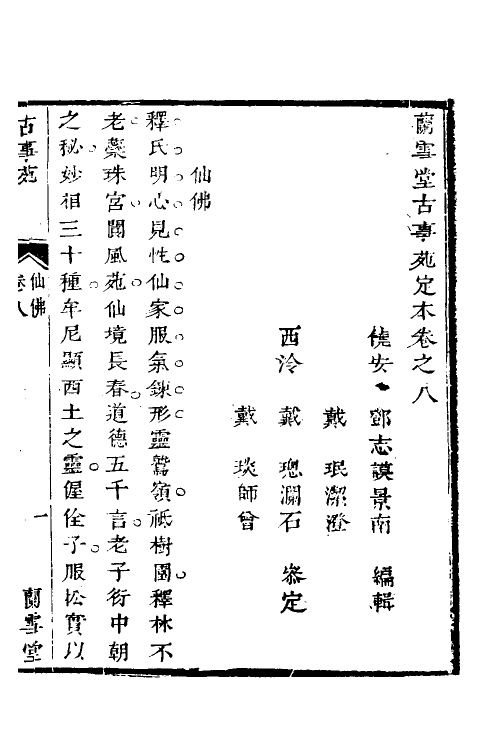 蘭雪堂古事苑定本卷之八
饒安 鄧志謨景南 編輯
戴 珉潔澄
西泠 戴 璁瀾石 叅定
戴 琰師曾
仙佛
釋氏明心見性仙家服氣鍊形靈鷲嶺祇樹園釋林不
老蘂珠宮閬風苑仙境長春道德五千言老子衍中朝
之秘妙相三十種牟尼顯西土之靈偓佺子服松實以
古事苑
卷八
仙佛
一
蘭雪堂